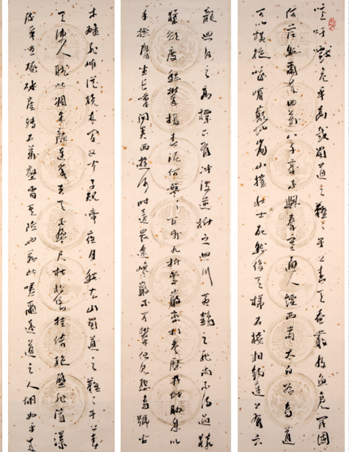 噫吁嚱危乎高哉蜀道之難難於上青天蠶叢及魚鳧開國
何茫然爾來四萬八千歲不與秦塞通人煙西當太白有鳥道
可以橫絕峨嵋巔地崩山摧壯士死然後天梯石棧相鉤連上有六
龍迴日之高標下有衝波逆折之回川黃鶴之飛尚不得過猿
猱欲度愁攀援青泥何盤盤百步九折縈巖巒捫參歷井仰脅息以
手撫膺坐長嘆問君西遊何時還畏途巉巖不可攀但見悲鳥號古
木雄飛雌從繞林間又聞子規啼夜月愁空山蜀道之難難於上青
天使人聽此凋朱顏連峰去天不盈尺枯松倒掛倚絕壁飛湍瀑
流爭喧豗砯崖轉石萬壑雷其險也如此嗟爾遠道之人胡為乎來